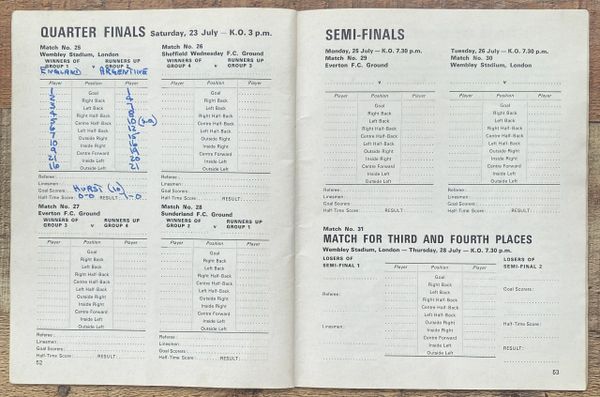 QUARTER FINALS Saturday, 23 July — K.O. 3 p.m.
Match No. 25
Wembley Stadium, London
WINNERS OF GROUP 1 v RUNNERS UP GROUP 2
ENGLAND ARGENTINE
Player Position Player
1 Goal 1
2 Right Back 4
3 Left Back 7
4 Right Half-Back 8
5 Centre Half-Back 10 (S.O)
6 Left Half-Back 12
7 Outside Right 15
10 Inside Right 16
9 Centre Forward 19
21 Inside Left 20
16 Outside Left 21
Referee:
Linesmen:
Goal Scorers: HURST (10)
Half-Time Score: 0-0 RESULT: 1-0
Match No. 26
Sheffield Wednesday F.C. Ground
WINNERS OF GROUP 4 v RUNNERS UP GROUP 3
Player Position Player
Goal
Right Back
Left Back
Right Half-Back
Centre Half-Back
Left Half-Back
Outside Right
Inside Right
Centre Forward
Inside Left
Outside Left
Referee:
Linesmen:
Goal Scorers:
Half-Time Score: RESULT:
Match No. 27
Everton F.C. Ground
WINNERS OF GROUP 3 v RUNNERS UP GROUP 4
Player Position Player
Goal
Right Back
Left Back
Right Half-Back
Centre Half-Back
Left Half-Back
Outside Right
Inside Right
Centre Forward
Inside Left
Outside Left
Referee:
Linesmen:
Goal Scorers:
Half-Time Score: RESULT:
Match No. 28
Sunderland F.C. Ground
WINNERS OF GROUP 2 v RUNNERS UP GROUP 1
Player Position Player
Goal
Right Back
Left Back
Right Half-Back
Centre Half-Back
Left Half-Back
Outside Right
Inside Right
Centre Forward
Inside Left
Outside Left
Referee:
Linesmen:
Goal Scorers:
Half-Time Score: RESULT:
52
SEMI-FINALS
Monday, 25 July — K.O. 7.30 p.m.
Match No. 29
Everton F.C. Ground
v
Player Position Player
Goal
Right Back
Left Back
Right Half-Back
Centre Half-Back
Left Half-Back
Outside Right
Inside Right
Centre Forward
Inside Left
Outside Left
Referee:
Linesmen:
Goal Scorers:
Half-Time Score: RESULT:
Tuesday, 26 July — K.O. 7.30 p.m.
Match No. 30
Wembley Stadium, London
v
Player Position Player
Goal
Right Back
Left Back
Right Half-Back
Centre Half-Back
Left Half-Back
Outside Right
Inside Right
Centre Forward
Inside Left
Outside Left
Referee:
Linesmen:
Goal Scorers:
Half-Time Score: RESULT:
Match No. 31
MATCH FOR THIRD AND FOURTH PLACES
Wembley Stadium, London — Thursday, 28 July — K.O. 7.30 p.m.
LOSERS OF SEMI-FINAL 1
Player Position Player
LOSERS OF SEMI-FINAL 2
Goal
Right Back
Left Back
Right Half-Back
Centre Half-Back
Left Half-Back
Outside Right
Inside Right
Centre Forward
Inside Left
Outside Left
Referee:
Linesmen:
Goal Scorers:
Half-Time Score:
RESULT:
53